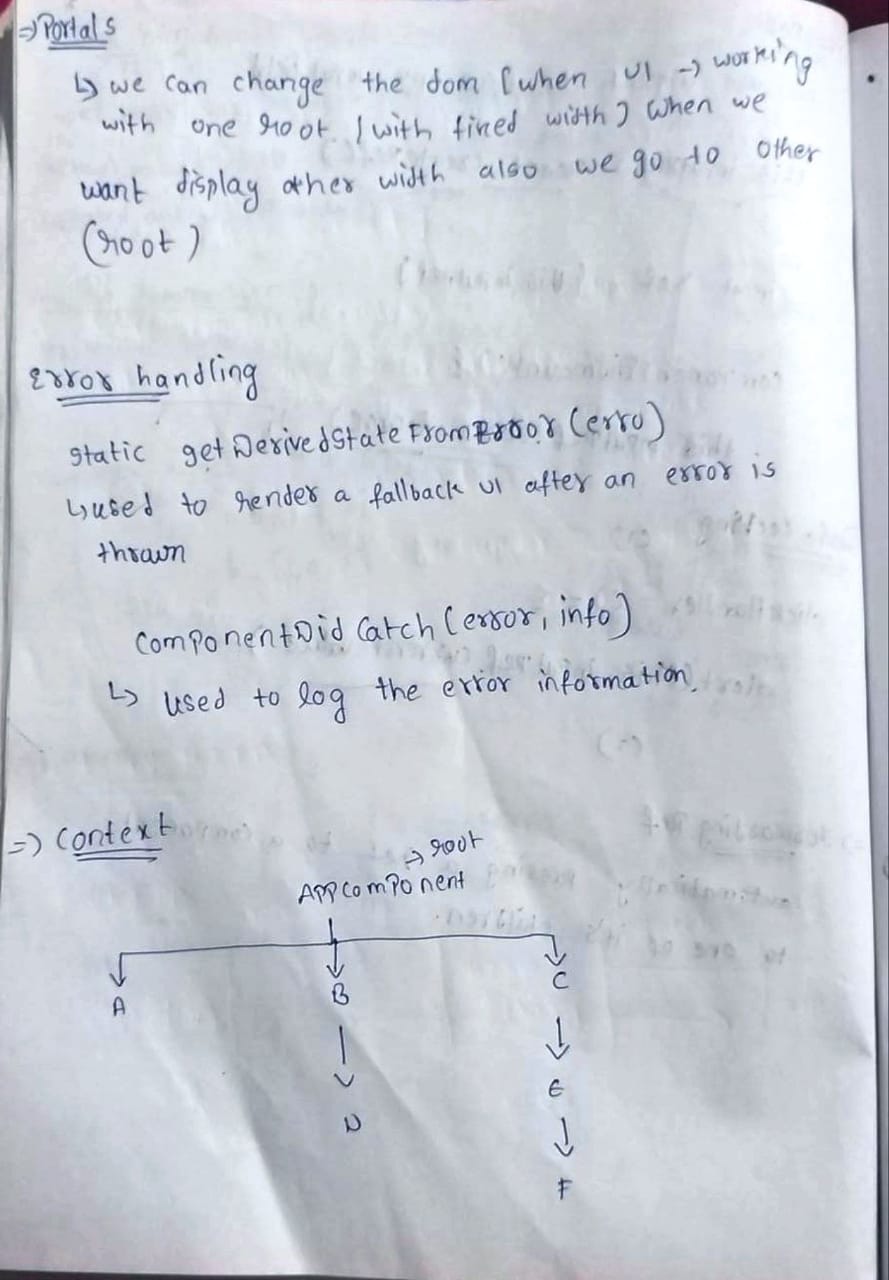 ⇒ Portals
↳ we can change the dom [when UI → working
with one root / with fixed width] when we
want display other width also we go to other
(root)
Error handling
static getDerivedStateFromError (erro)
↳ used to render a fallback UI after an error is
thrown
ComponentDid Catch (error, info)
↳ used to log the error information.
⇒ Context
→ root
APP component
A B C
↓ ↓
N E
↓
F